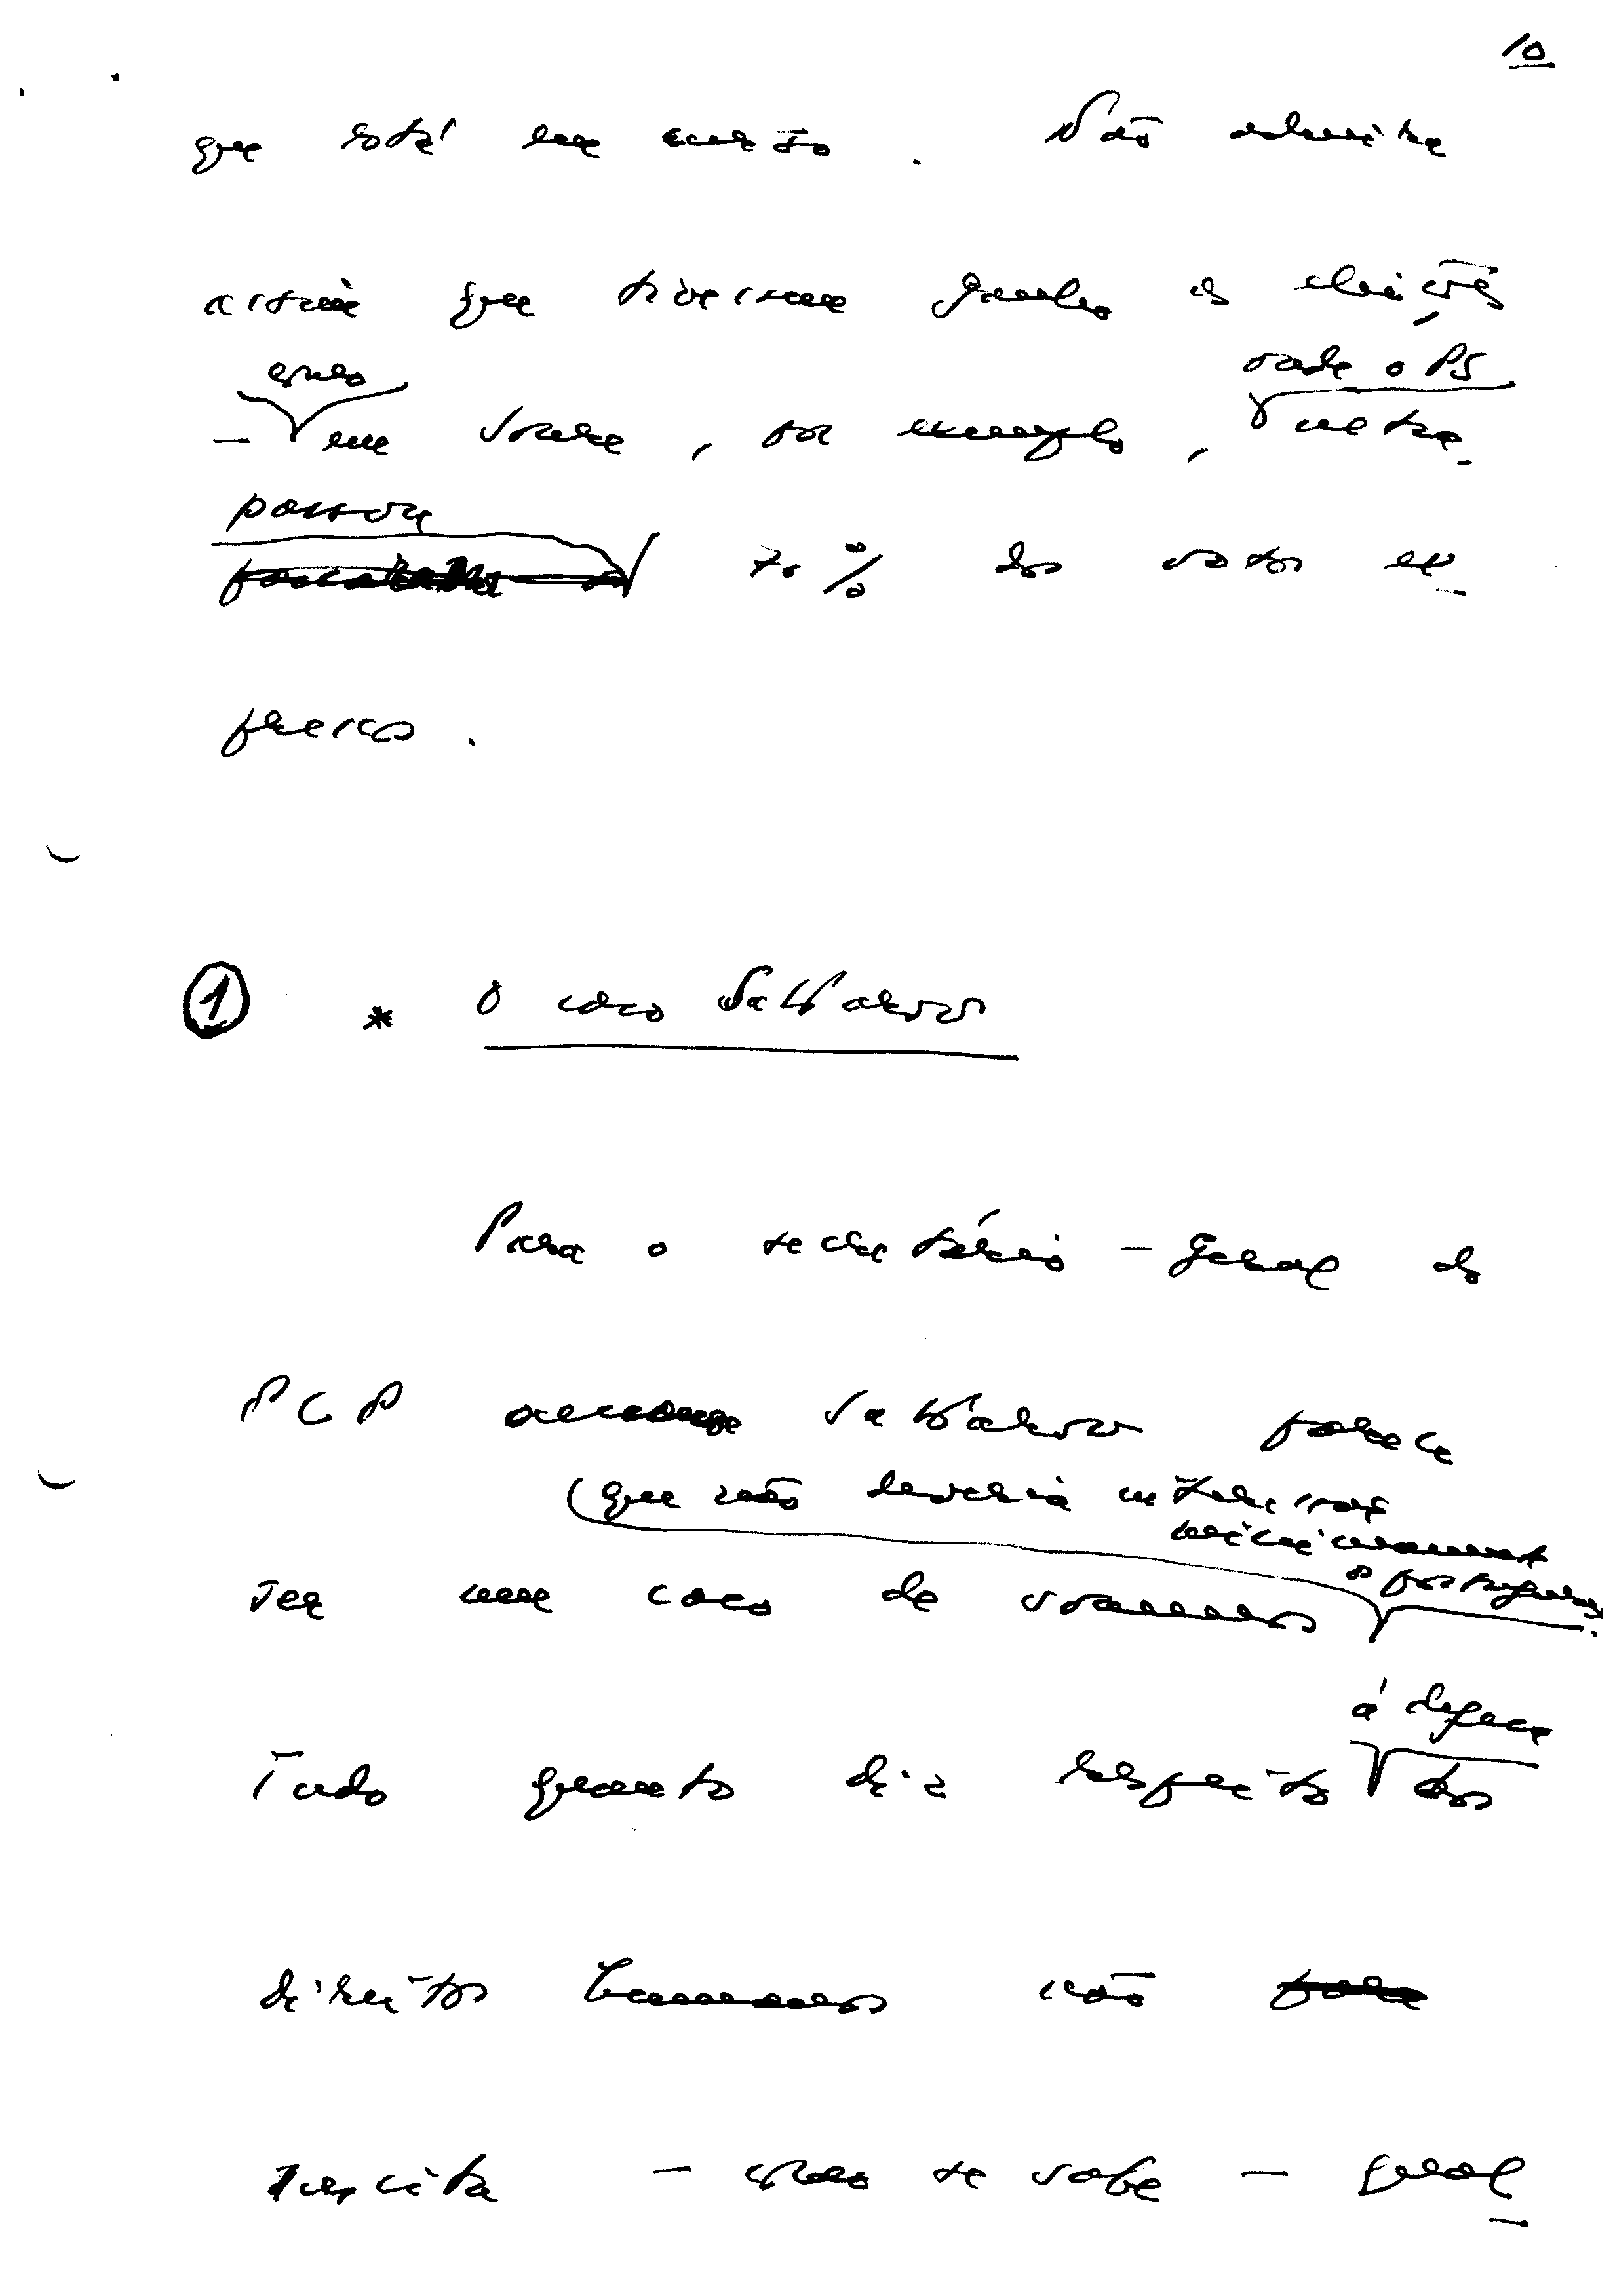 10
que está em curso. Não admira
assim que tivessem ganho as eleições
como
onde o PS
— em Loures, por exemplo, ultra-
passou
70% dos votos ex-
pressos.
① * O caso Sakharov
Para o secretário-geral do
PCP Sakharov parece
que não deveria interessar
minimamente
os portugueses.
ser um caso de somenos
à defesa
Tudo quanto diz respeito dos
direitos humanos não
suscita — como se sabe — qual-